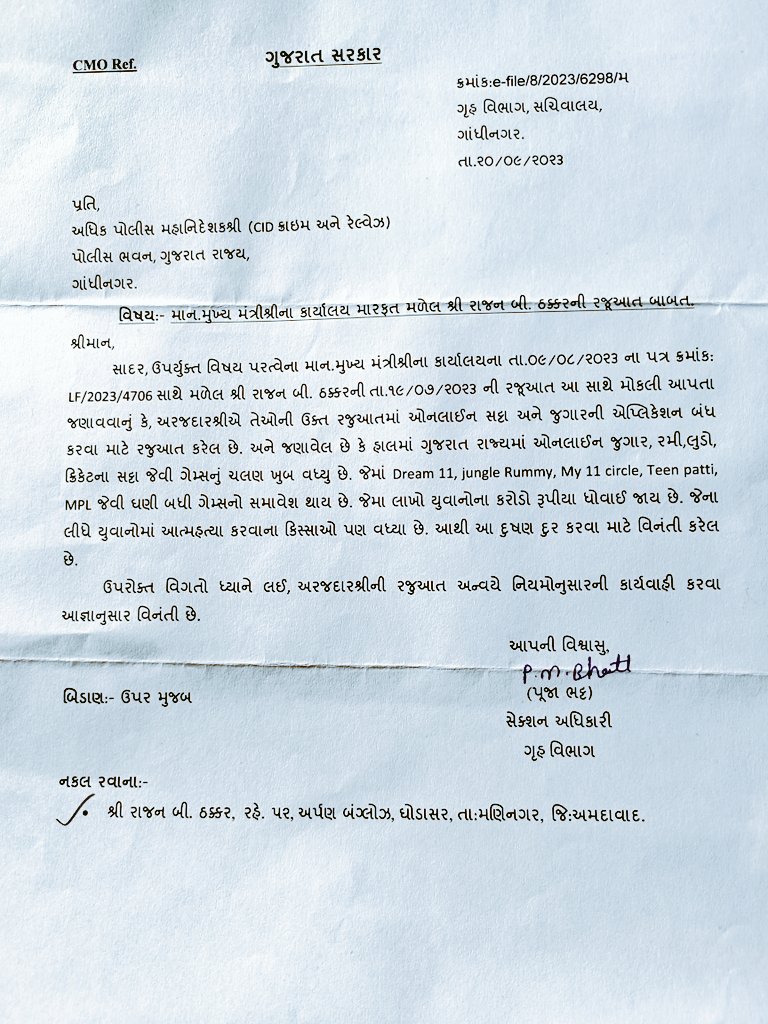 CMO Ref.
ગુજરાત સરકાર
ક્રમાંક:e-file/8/2023/6298/મ
ગૃહ વિભાગ, સચિવાલય,
ગાંધીનગર.
તા.૨૦/૦૯/૨૦૨૩
પ્રતિ,
અધિક પોલીસ મહાનિદેશકશ્રી (CID ક્રાઇમ અને રેલ્વેઝ)
પોલીસ ભવન, ગુજરાત રાજ્ય,
ગાંધીનગર.
વિષય:- માન.મુખ્ય મંત્રીશ્રીના કાર્યાલય મારફત મળેલ શ્રી રાજન બી. ઠક્કરની રજૂઆત બાબત.
શ્રીમાન,
સાદર, ઉપર્યુક્ત વિષય પરત્વેના માન.મુખ્ય મંત્રીશ્રીના કાર્યાલયના તા.૦૯/૦૮/૨૦૨૩ ના પત્ર ક્રમાંક:
LF/2023/4706 સાથે મળેલ શ્રી રાજન બી. ઠક્કરની તા.૧૯/૦૭/૨૦૨૩ ની રજૂઆત આ સાથે મોકલી આપતા
જણાવવાનું કે, અરજદારશ્રીએ તેઓની ઉક્ત રજુઆતમાં ઓનલાઈન સટ્ટા અને જુગારની એપ્લિકેશન બંધ
કરવા માટે રજુઆત કરેલ છે. અને જણાવેલ છે કે હાલમાં ગુજરાત રાજ્યમાં ઓનલાઈન જુગાર, રમી,લુડો,
ક્રિકેટના સટ્ટા જેવી ગેમ્સનું ચલણ ખુબ વધ્યુ છે. જેમાં Dream 11, jungle Rummy, My 11 circle, Teen patti,
MPL જેવી ઘણી બધી ગેમ્સનો સમાવેશ થાય છે. જેમા લાખો યુવાનોના કરોડો રૂપીયા ધોવાઈ જાય છે. જેના
લીધે યુવાનોમાં આત્મહત્યા કરવાના કિસ્સાઓ પણ વધ્યા છે. આથી આ દુષણ દુર કરવા માટે વિનંતી કરેલ
છે.
ઉપરોક્ત વિગતો ધ્યાને લઈ, અરજદારશ્રીની રજુઆત અન્વયે નિયમોનુસારની કાર્યવાહી કરવા
આજ્ઞાનુસાર વિનંતી છે.
આપની વિશ્વાસુ,
P.M.Bhatt
(પૂજા ભટ્ટ)
સેક્શન અધિકારી
ગૃહ વિભાગ
બિડાણ:- ઉપર મુજબ
નકલ રવાના:-
• શ્રી રાજન બી. ઠક્કર, રહે. ૫૨, અર્પણ બંગ્લોઝ, ઘોડાસર, તા:મણિનગર, જિ:અમદાવાદ.